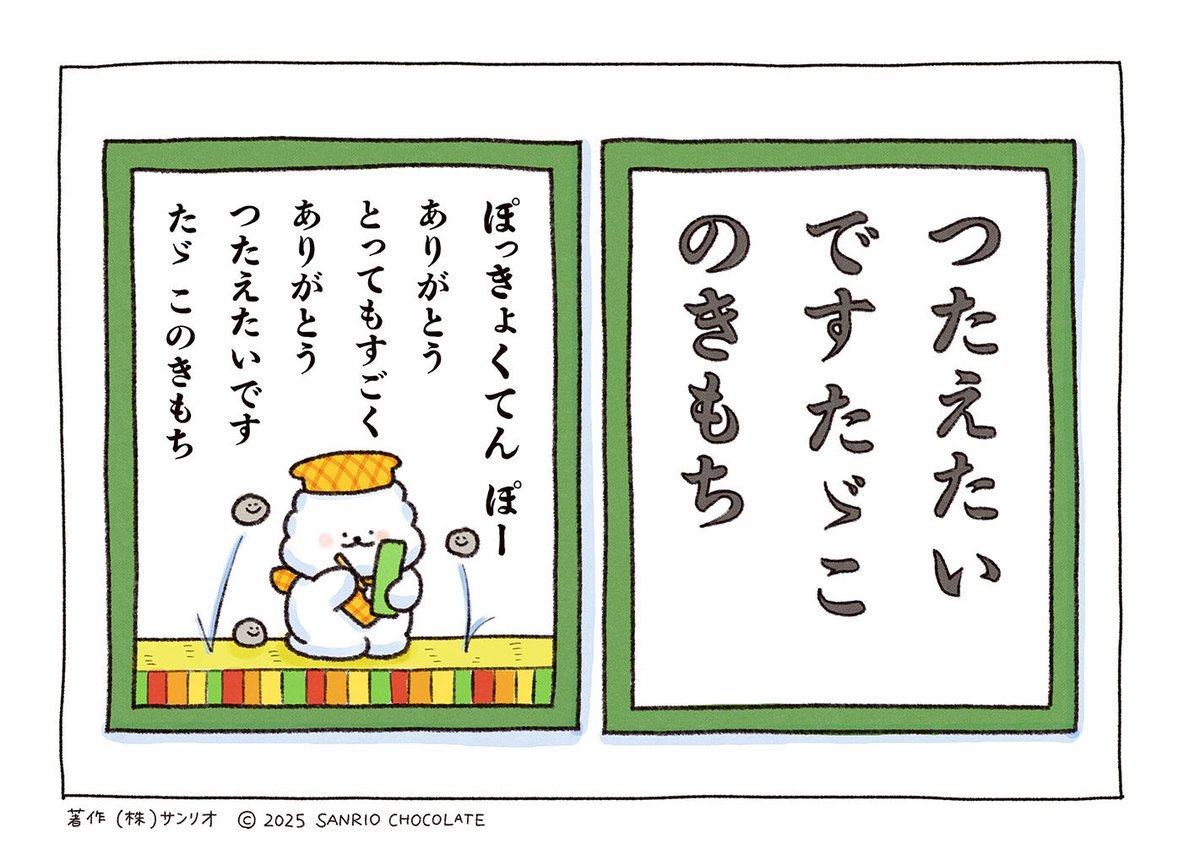 つたえたい
ですたゞこ
のきもち
ぽっきょくてん ぽー
ありがとう
とってもすごく
ありがとう
つたえたいです
たゞ このきもち
著作(株)サンリオ © 2025 SANRIO CHOCOLATE